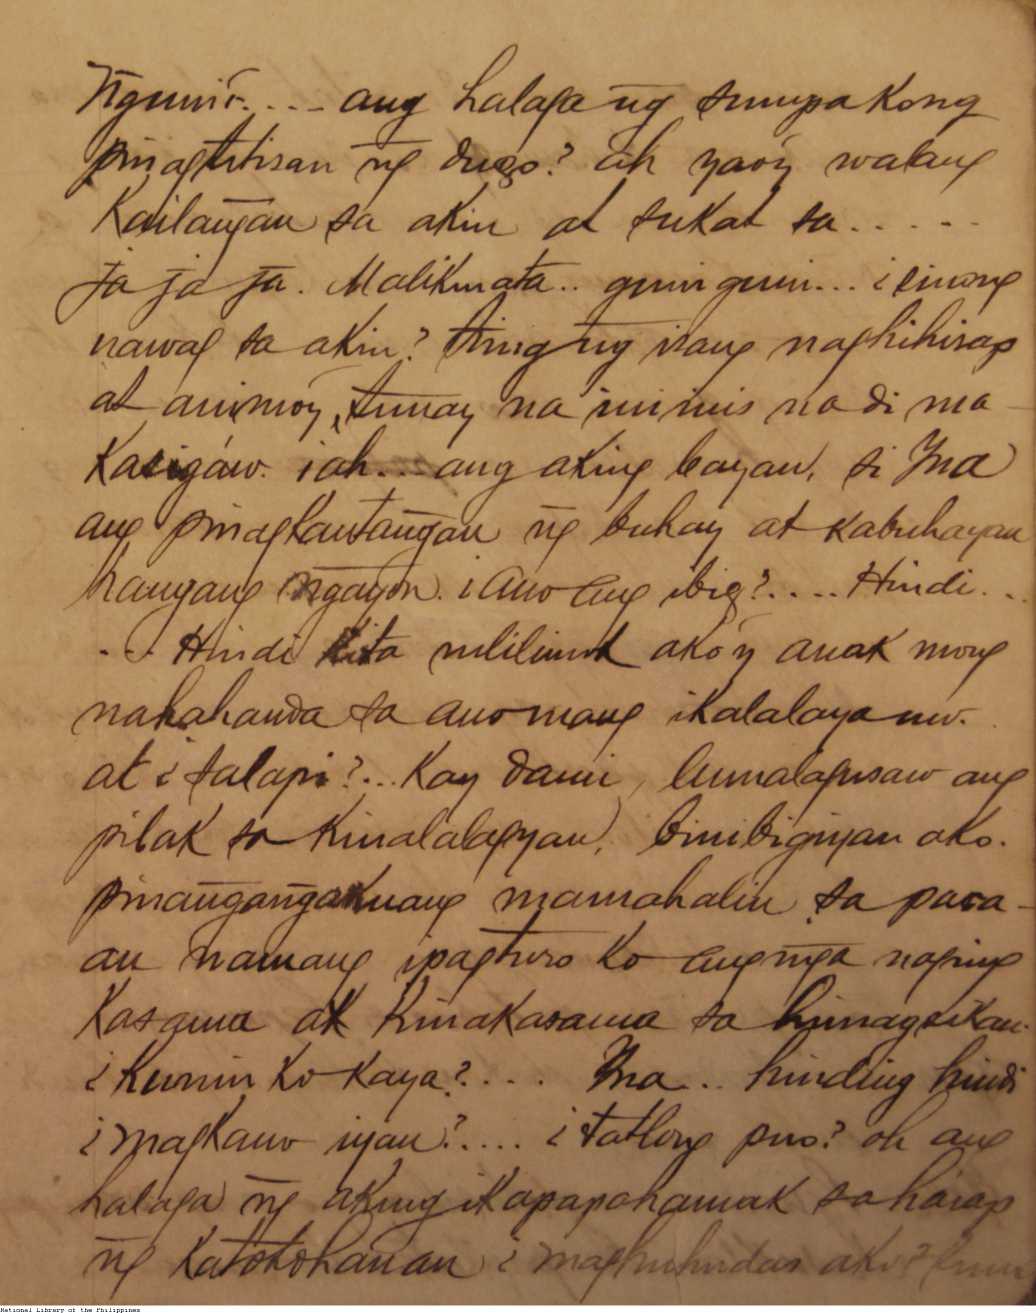 Ng̃uni't.... ang halaga ng̃ sumpa kong
pinagtitisan ng̃ dugo? ah yao'y walang
Kailang̃an sa akin at sukat sa.....
ja ja ja. Malikmata.. guniguni... ¿sinong
nawag sa akin? tinig ng̃ isang naghihirap
at animo'y tunay na iniinis na di ma-
Kasigáw. ¡ah... ang aking bayan, si Ina
ang pinagkautang̃an ng̃ buhay at kabuhayan
hangang ng̃ayon. ¿Ano ang ibig?.... Hindi...
... Hindi kita nililimot ako'y anak mong
nahahanda sa anomang ikalalaya mo.
at ¿salapi?... Kay dami, lumalagusaw ang
pilak sa kinalalagyan, binibigyan ako.
pinang̃ang̃akuang mamahalin sa para-
an namang ipagturo ko ang mg̃a naging
Kasama at Kinakasama sa himagsikan.
¿Kunin ko kaya?.... Ina.. hinding hindi
¿magkano iyan?.... ¿tatlong puo? oh ang
halaga ng̃ aking ikapapahamak sa harap
ng̃ Katotohanan ¿maghuhudas ako?
National Library of the Philippines